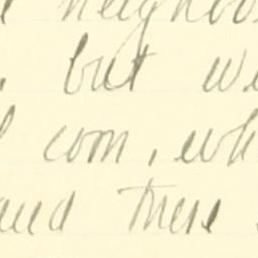 neighbo
, but we
com, wh
and there